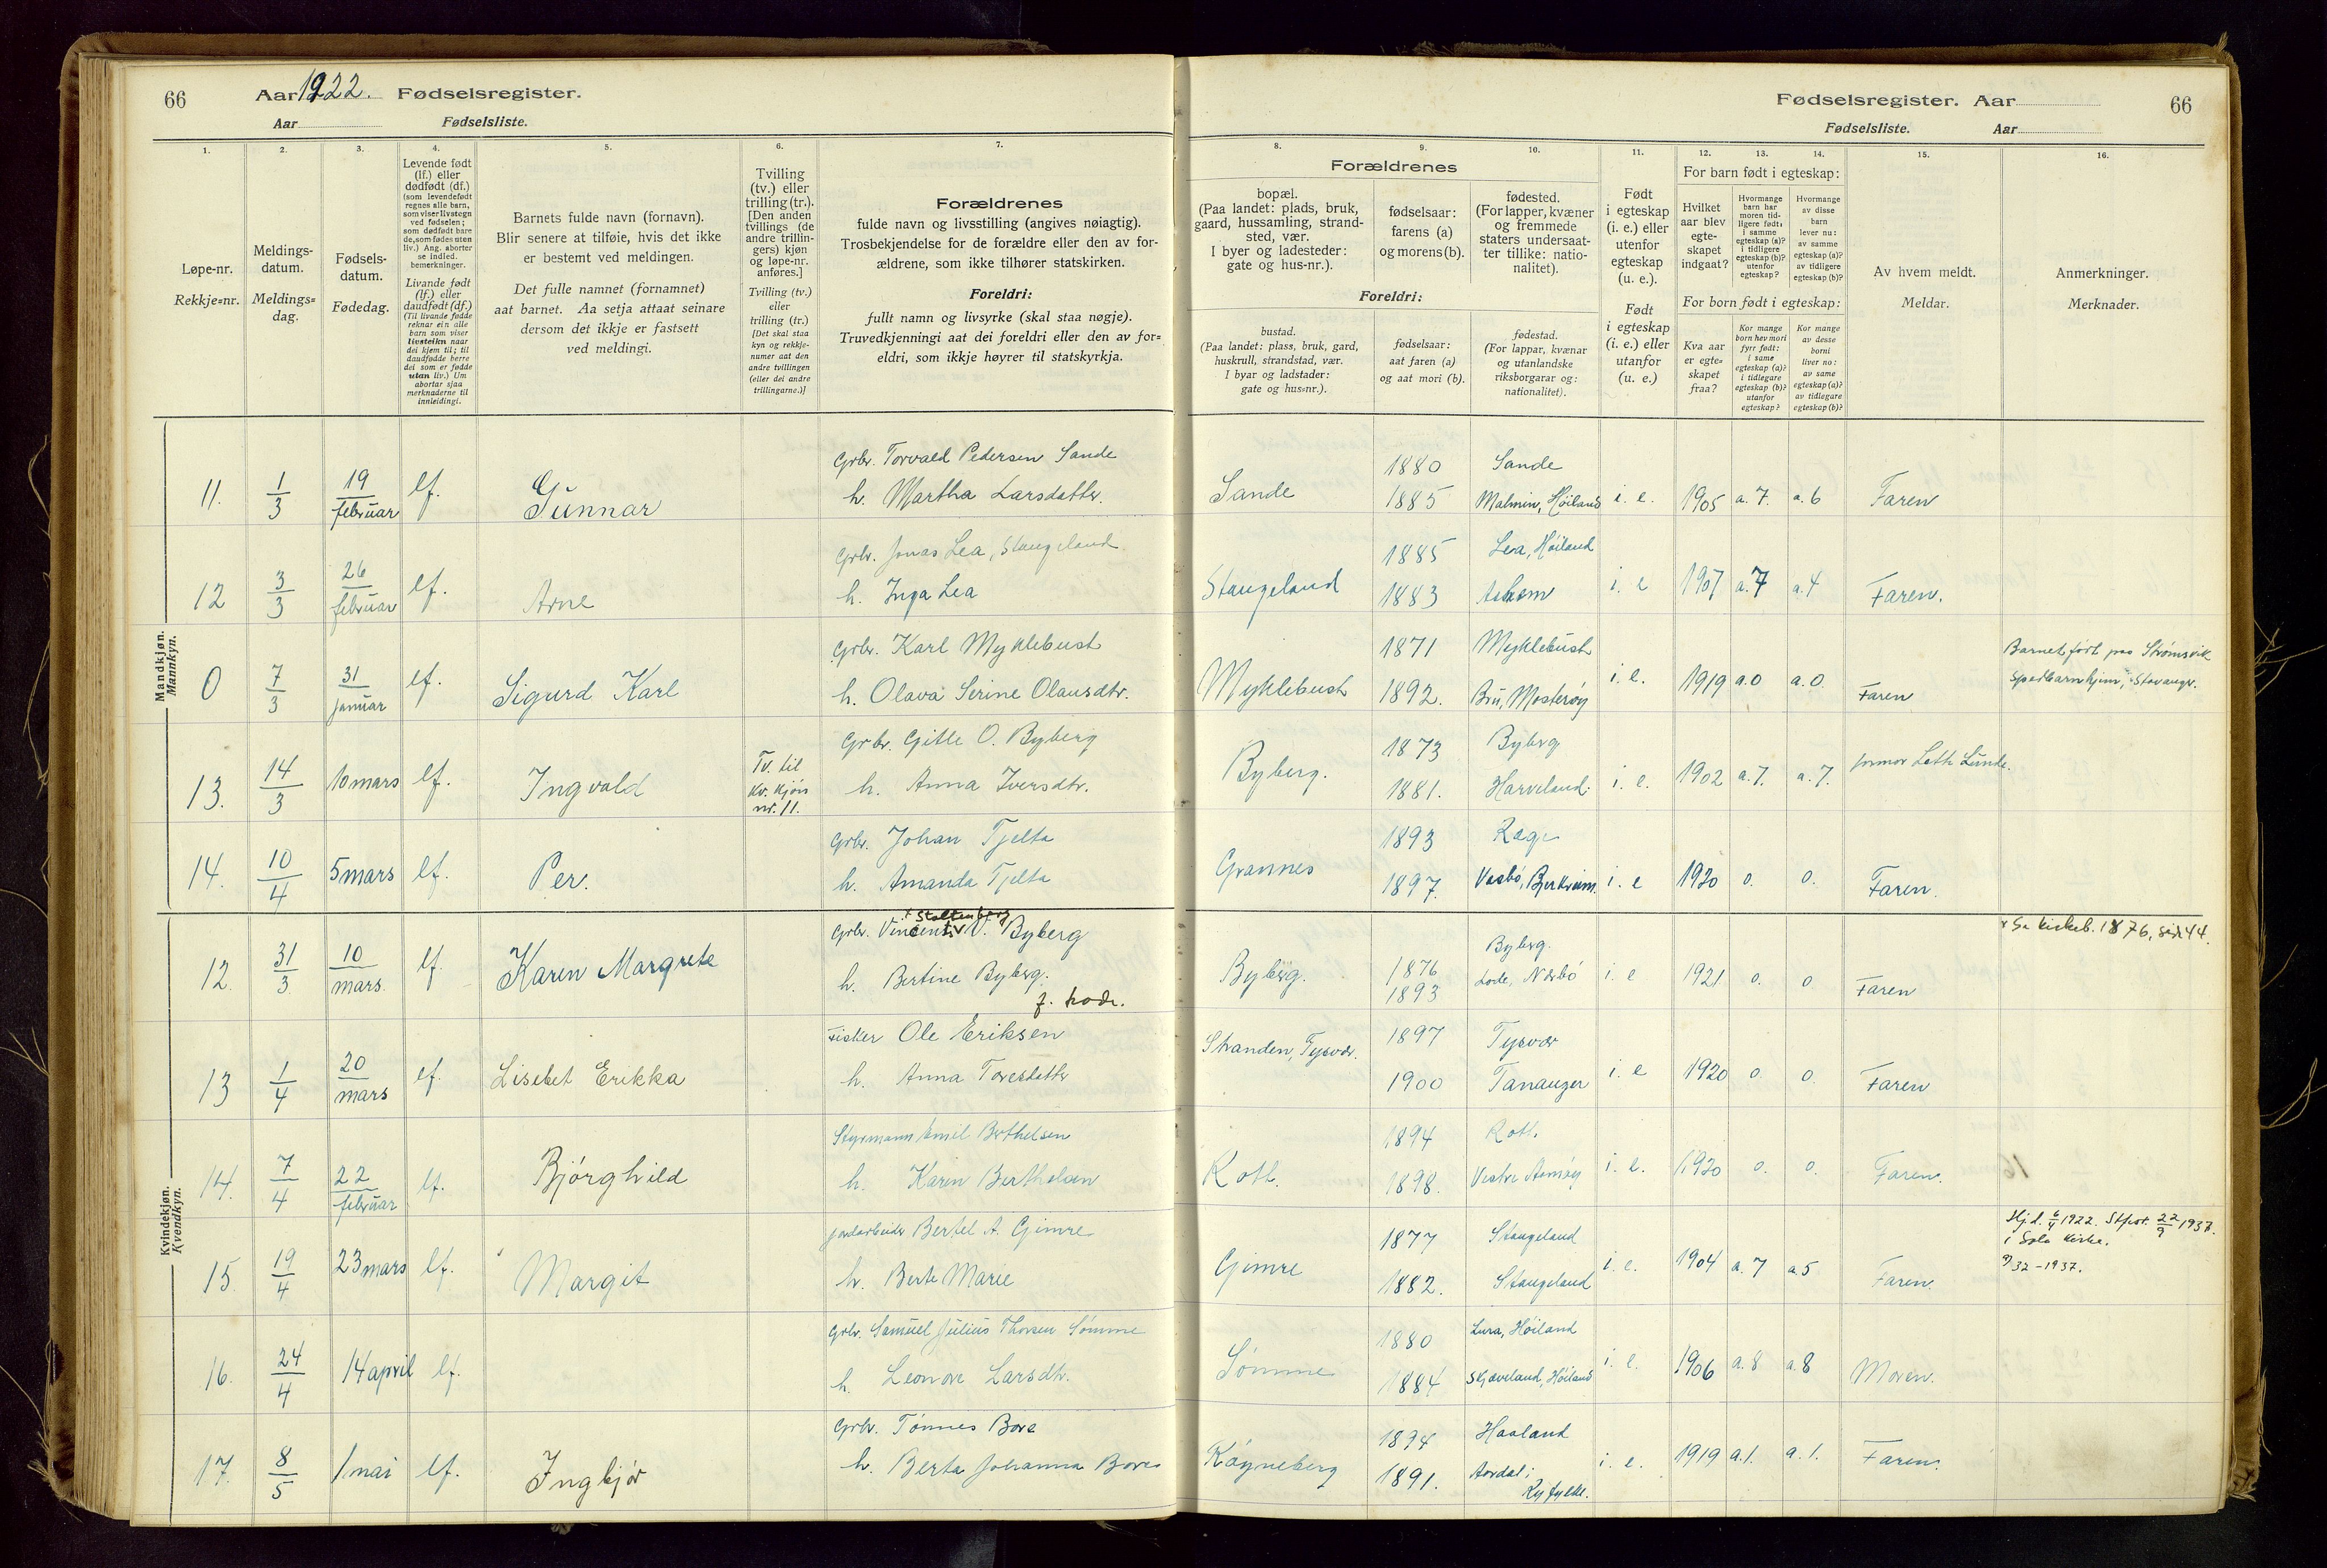 66 Aar 1922. Fødselsregister.
Aar Fødselsliste.
Fødselsregister. Aar 66
Fødselsliste. Aar
1. 2. 3. 4. 5. 6. 7. 8. 9. 10. 11. 12. 13. 14. 15. 16.
Løpe-nr.
Rekkje=nr.
Meldings-
datum.
Meldings=
dag.
Fødsels-
datum.
Fødedag.
Levende født
(lf.) eller
dødfødt (df.)
(som levendefødt
regnes alle barn,
som viser livstegn
ved fødselen;
som dødfødt bare
de, som fødes uten
liv.) Ang. aborter
se indled.
bemerkninger.
Livande født
(lf.) eller
daudfødt (df.)
(Til livande fødde
reknar ein alle
born som viser
livsteikn naar
dei kjem til; til
daudfødde berre
dei som er fødde
utan liv.) Um
abortar sjaa
merknaderne til
innleidingi.
Barnets fulde navn (fornavn).
Blir senere at tilføie, hvis det ikke
er bestemt ved meldingen.
Det fulle namnet (fornamnet)
aat barnet. Aa setja attaat seinare
dersom det ikkje er fastsett
ved meldingi.
Tvilling
(tv.) eller
trilling (tr.).
[Den anden
tvillings (de
andre trillin-
gers) kjøn
og løpe-nr.
anføres.]
Tvilling (tv.)
eller
trilling (tr.)
[Det skal staa
kyn og rekkje-
numer aat den
andre tvillingen
(eller dei andre
trillingarne.)]
Forældrenes
fulde navn og livsstilling (angives nøiagtig).
Trosbekjendelse for de forældre eller den av for-
ældrene, som ikke tilhører statskirken.
Foreldri:
fullt namn og livsyrke (skal staa nøgje).
Truvedkjenningi aat dei foreldri eller den av for=
eldri, som ikkje høyrer til statskyrkja.
Forældrenes
bopæl.
(Paa landet: plads, bruk,
gaard, hussamling, strand-
sted, vær.
I byer og ladesteder:
gate og hus-nr.).
fødselsaar:
farens (a)
og morens (b).
fødested.
(For lapper, kvæner
og fremmede
staters undersaat-
ter tillike: natio-
nalitet).
Foreldri:
bustad.
(Paa landet: plass, bruk, gard,
huskrull, strandstad, vær.
I byar og ladstader:
gate og hus=nr.).
fødselsaar:
aat faren (a)
og aat mori (b).
fødestad.
(For lappar, kvænar
og utanlandske
riksborgarar og:
nationalitet).
Født
i egteskap
(i. e.) eller
utenfor
egteskap
(u. e.).
Født
i egteskap
(i. e.) eller
utanfor
(u. e.)
For barn født i egteskap:
Hvilket
aar blev
egte-
skapet
indgaat?
Hvormange
barn har
moren tid-
ligere født:
i samme
egteskap (a)?
i tidligere
egteskap (b)?
utenfor
egteskap?
Hvormange
av disse
barn
lever nu:
av samme
egteskap (a)?
av tidligere
egteskap (b)?
For born født i egteskap:
Kva aar
er egte=
skapet
fraa?
Kor mange
born hev mori
fyrr født:
i same
egteskap (a)?
i tidlegare
egteskap (b)?
utanfor
egteskap?
Kor mange
av desse
borni
liver no:
av same
egteskap (a)?
av tidlegare
egteskap (b)?
Av hvem meldt.
Meldar.
Anmerkninger.
Merknader.
Mandkjøn.
Mannkyn.
Grbr. Torvald Pedersen Sande 1880 Sande
11. 1/3 19 februar lf. Gunnar h. Martha Larsdatter. Sande 1885 Malmin, Høiland i. e. 1905 a. 7. a. 6 Faren
Grbr. Jonas Lea, Stangeland 1885 Lea, Høiland
12 3/3 26 februar lf. Arne h. Inga Lea Stangeland 1883 i. e 1907 a. 7 a. 4 Faren.
Grbr. Karl Myklebust 1871 Myklebust Barnet født paa Strømsvik
0 7/3 31 januar lf. Sigurd Karl h. Olava Serine Olausdtr. Myklebust 1892. Bru, Mosterøy i. e. 1919 a. 0 a. 0. Faren spedbarnhjem, Stavanger.
Grbr. Gitle O. Byberg 1873 Byberg
13. 14/3 10 mars lf. Ingvald Tv. til kv. kjøn nr. 11. h. Anna Iversdtr. Byberg. 1881. Harveland. i. e. 1902 a. 7. a. 7. jormor Lunde.
Grbr. Johan Tjelta 1893 Rege
14. 10/4 5 mars lf. Per. h. Amanda Tjelta Grannes 1897. Vasbø, Bjerkreim. i. e 1920 0. 0. Faren.
Kvindekjøn.
Kvendkyn.
x Stoltenberg
Grbr. Vincent V. Byberg Byberg. x Se kirkeb. 1876, side 44.
12. 31/3 10 mars. lf. Karen Margrete h. Bertine Byberg. Byberg. 1876 1893 Lode, Nærbø i. e 1921. 0. 0 Faren
f. Lode.
Fisker Ole Eriksen 1897 Tysvær
13 1/4 20 mars lf. Lisebet Erikka h. Anna Toresdatter Stranden, Tysvær. 1900 Tananger i. e 1920 0. 0. Faren
Styrmann Emil Berthelsen 1894 Rott.
14. 7/4 22 februar lf. Bjørghild h. Karin Berthelsen Rott. 1898. Vestre Aamøy i. e. 1920 0. 0. Faren.
Jordarbeider Bertel A. Gimre 1877 Stangeland Hj.d. 6/4 1922. Stfest. 22/9 1937.
i Sola kirke.
15. 19/4 23 mars lf. Margit h. Berte Marie Gimre 1882. Stangeland i. e. 1904 a. 7 a 5 Faren. 32 - 1937.
Grbr. Samuel Julius Thorsen Sømme 1880 Lura, Høiland
16. 24/4 14 april lf. h. Leonore Larsdtr. Sømme 1884 Skjæveland, Høiland i. e. 1906 a. 8 a. 8 Moren.
Grbr. Tønnes Bore 1894 Haaland
17. 8/5 1 mai lf. Ingbjør h. Berta Johanna Bore Røyneberg 1891. Aardal i Ryfylke. i. e. 1919 a. 1. a. 1. Faren.